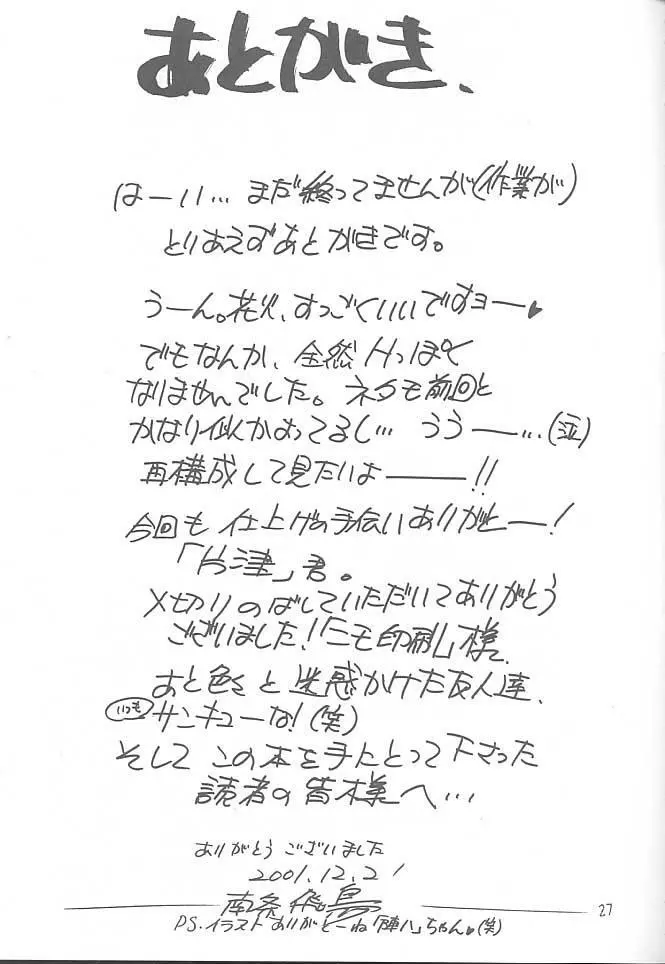 あとがき、
はーい… まだ終ってませんが(作業が)
とりあえずあとがきです。
うーん。花火、すっごくいいですョー♥
でもなんか、全然Hっぽく
なりませんでした。ネタも前回と
かなり似かよってるし… うぅー…(泣)
再構成して見たいよー!!
今回も 仕上げの手伝いありがとー!
「片津」君。
〆切りのばしていただいてありがとう
ございました!「ニモ印刷」様。
あと色々と迷惑かけた友人達、
いつもサンキューな!(笑)
そして この本を手にとって下さった
読者の皆様へ…
ありがとう ございました
2001.12.21
南条飛鳥
PS.イラストありがとーね「陣八」ちゃん♥(笑)
27